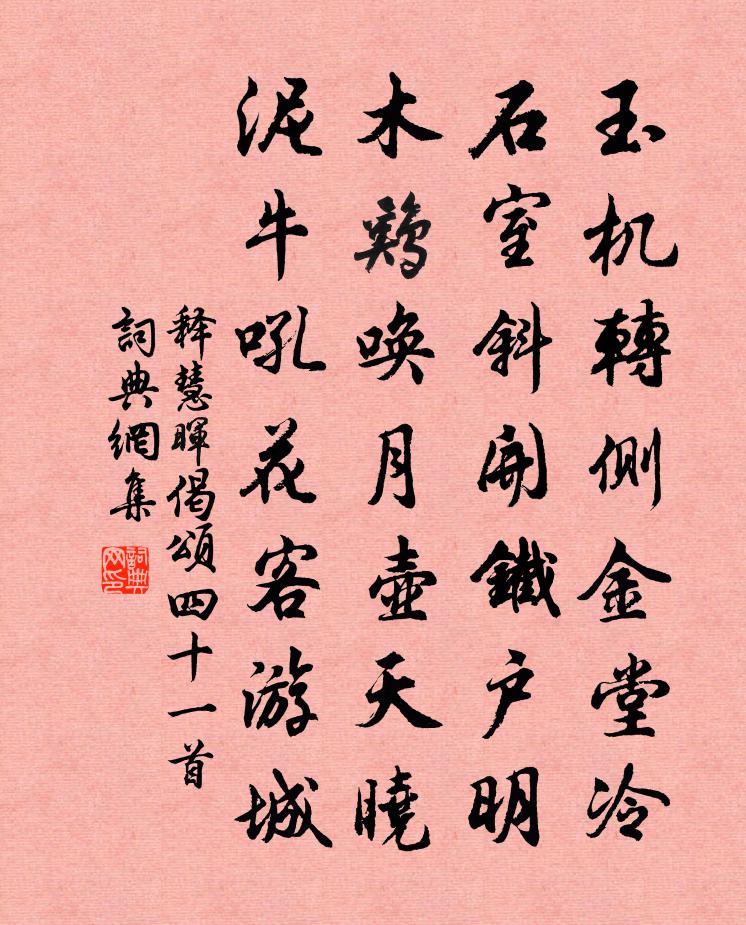 玉机轉側金堂冷
石室斜開鐵户明
木鷄喚月壺天曉
泥牛吼花客游城
释慧暉偈頌四十一首
詞典網集
詞典网印